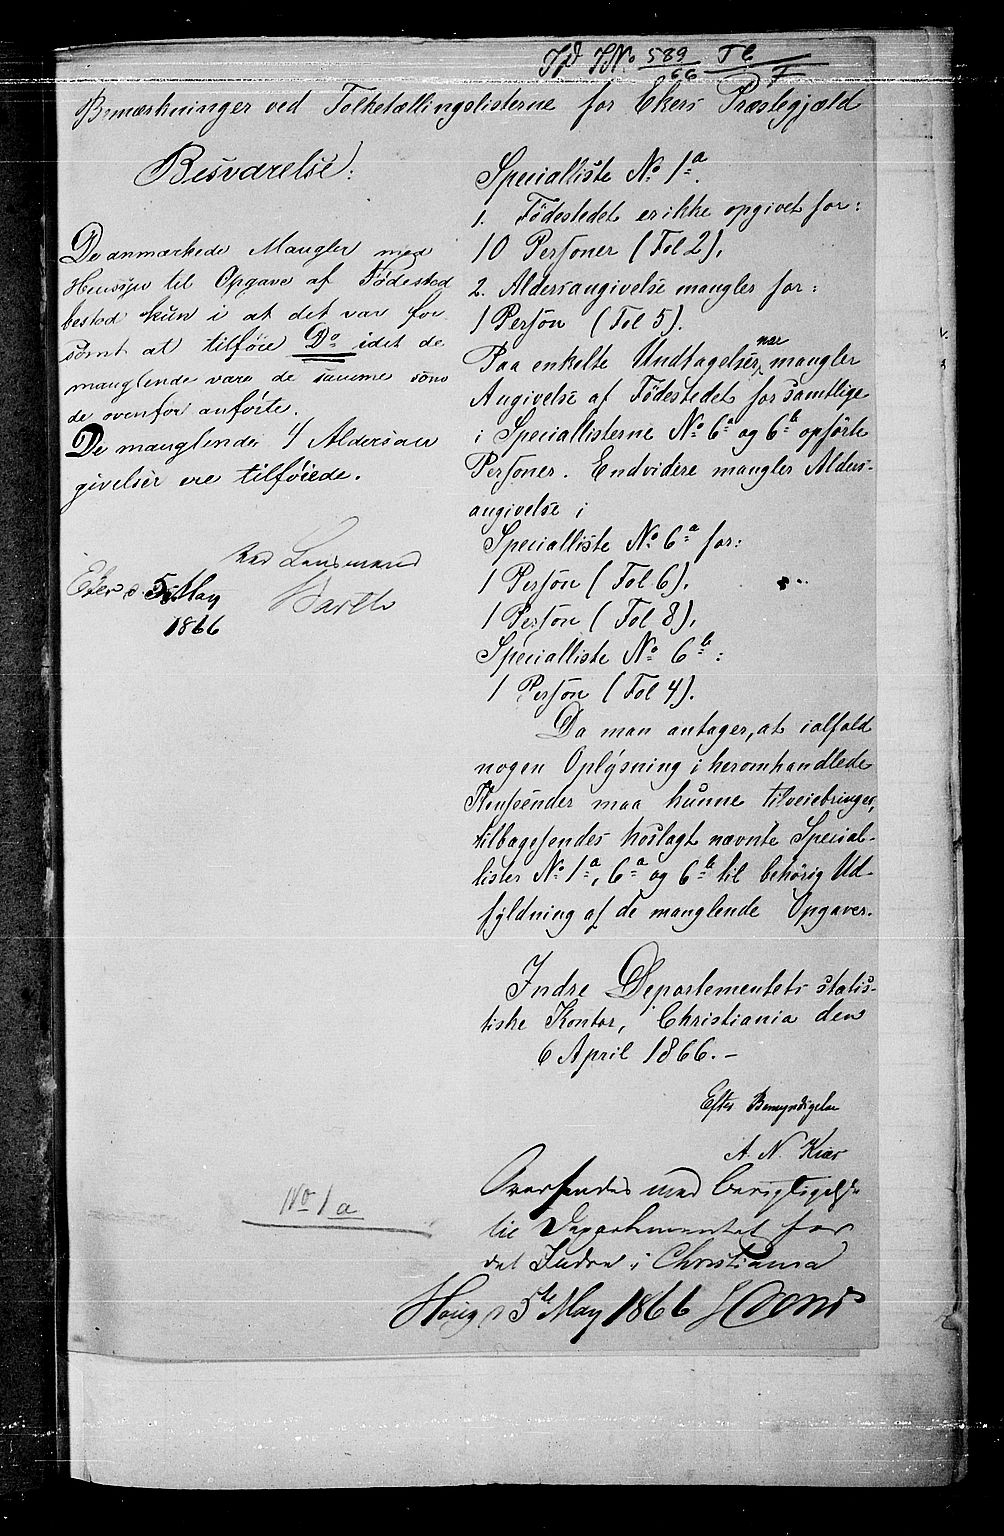 Id J No 589/66 Tb/F
Bemærkninger ved Folketællingslisterne for Ekers Præstegjæld
Besvarelse:
De anmærkede Mangler med
Hensyn til Opgave af Fødested
bestod kun i at det var for
sømt at tilføie Do idet de
manglende vare de samme som
de ovenfor anførte.
De manglende 4 Aldersan
givelser ere tilføiede.
Eker d. 5 May
1866
ved Lensmand
Barth
No 1 a
Specialliste No 1a.
1. Fødestedet er ikke opgivet for:
10 Personer (Fol 2),
2. Aldersangivelse mangler for:
1 Person (Fol 5).
Paa enkelte Undtagelser nær mangler
Angivelse af Fødestedet for samtlige
i Speciallisterne No 6a og 6b opførte
Personer. Endvidere mangler Alders-
angivelse i
Specialliste No 6a for:
1 Person (Fol 6),
1 Person (Fol 8),
Specialliste No 6b:
1 Person (Fol 4).
Da man antager, at ialfald
nogen Oplysning i heromhandlede
Henseender maa kunne tilveiebringes,
tilbagesendes hoslagt nævnte Special-
lister No 1a, 6a og 6b til behørig Ud-
fyldning af de manglende Opgaver.
Indre Departementets statis-
tiske Kontor, Christiania den
6 April 1866. –
Efter Bemyndigelse
A. N. Kiær
Oversendes med Berigtigelse
til Departementet for
det Indre i Christiania
Houg d 5te May 1866